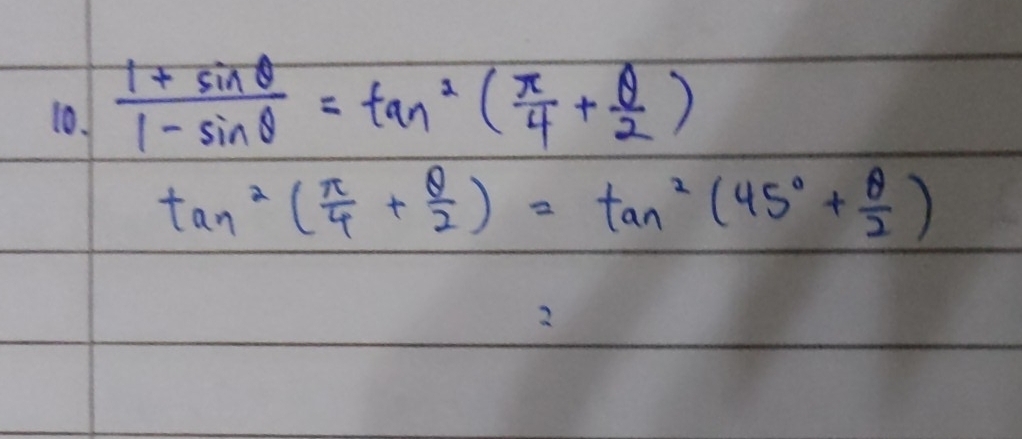 10. (1 + sin θ)/(1 - sin θ) = tan² (π/4 + θ/2)
tan² (π/4 + θ/2) = tan² (45° + θ/2)